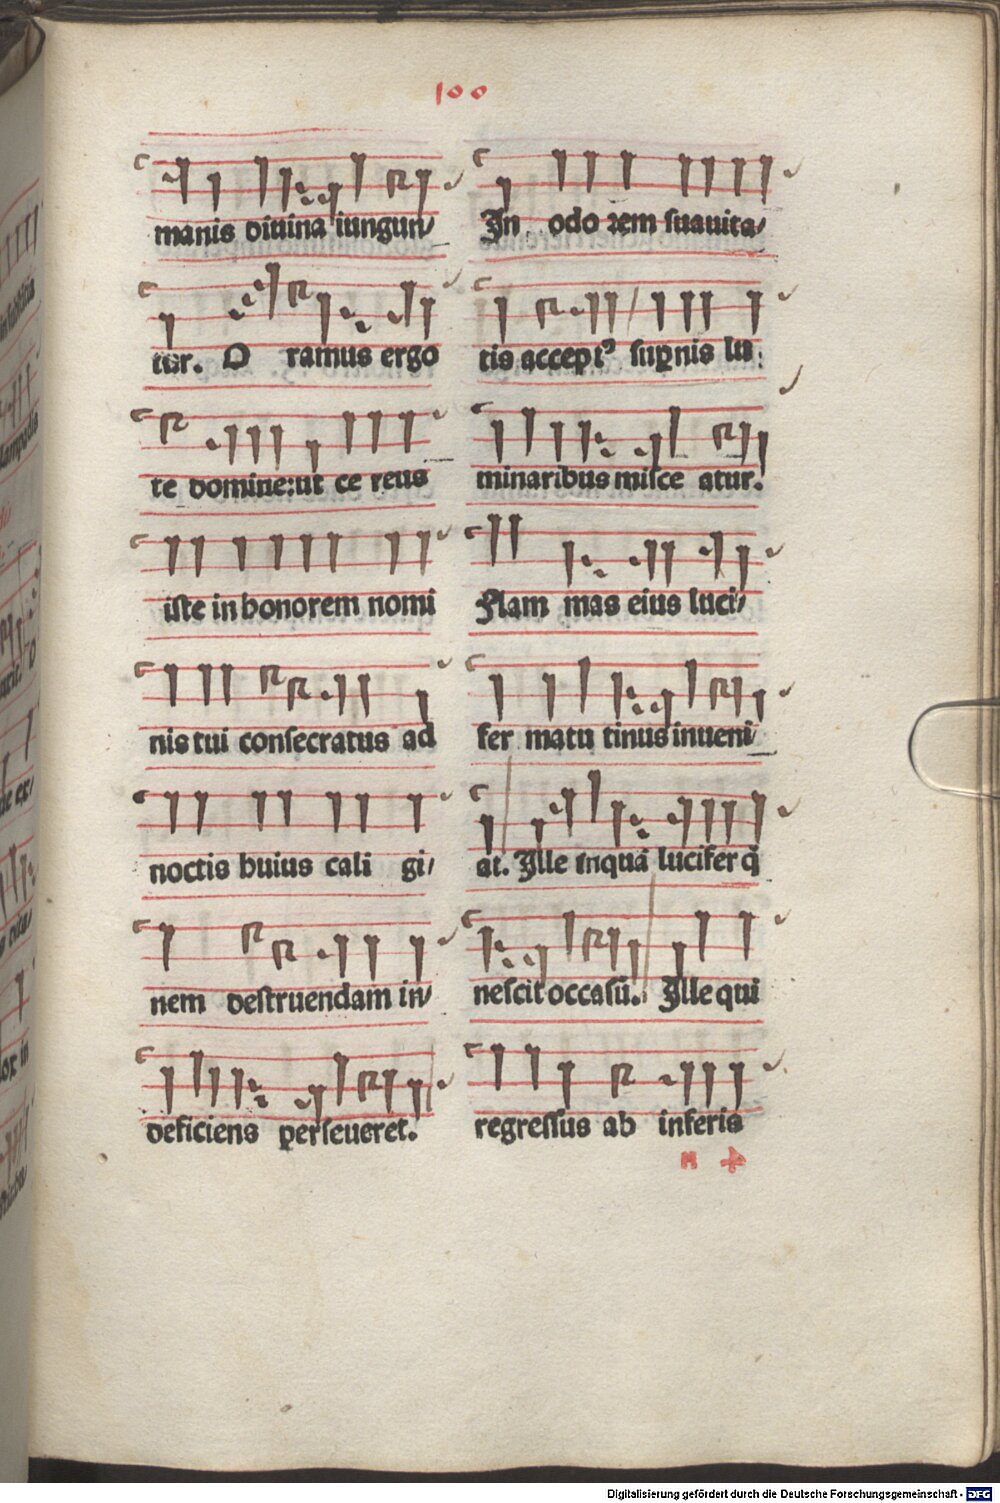 100
manis diuina iungun/
tur. O ramus ergo
te domine: ut ce reus
iste in honorem nomi
nis tui consecratus ad
noctis huius cali gi/
nem destruendam in/
deficiens perseueret.
In odo rem suauita/
tis accept⁹ sup̲nis lu
minaribus misce atur.
Flam mas eius luci/
fer matu tinus inueni/
at. Ille inquã lucifer q̃
nescit occasũ. Ille qui
regressus ab inferis
Digitalisierung gefördert durch die Deutsche Forschungsgemeinschaft - DFG